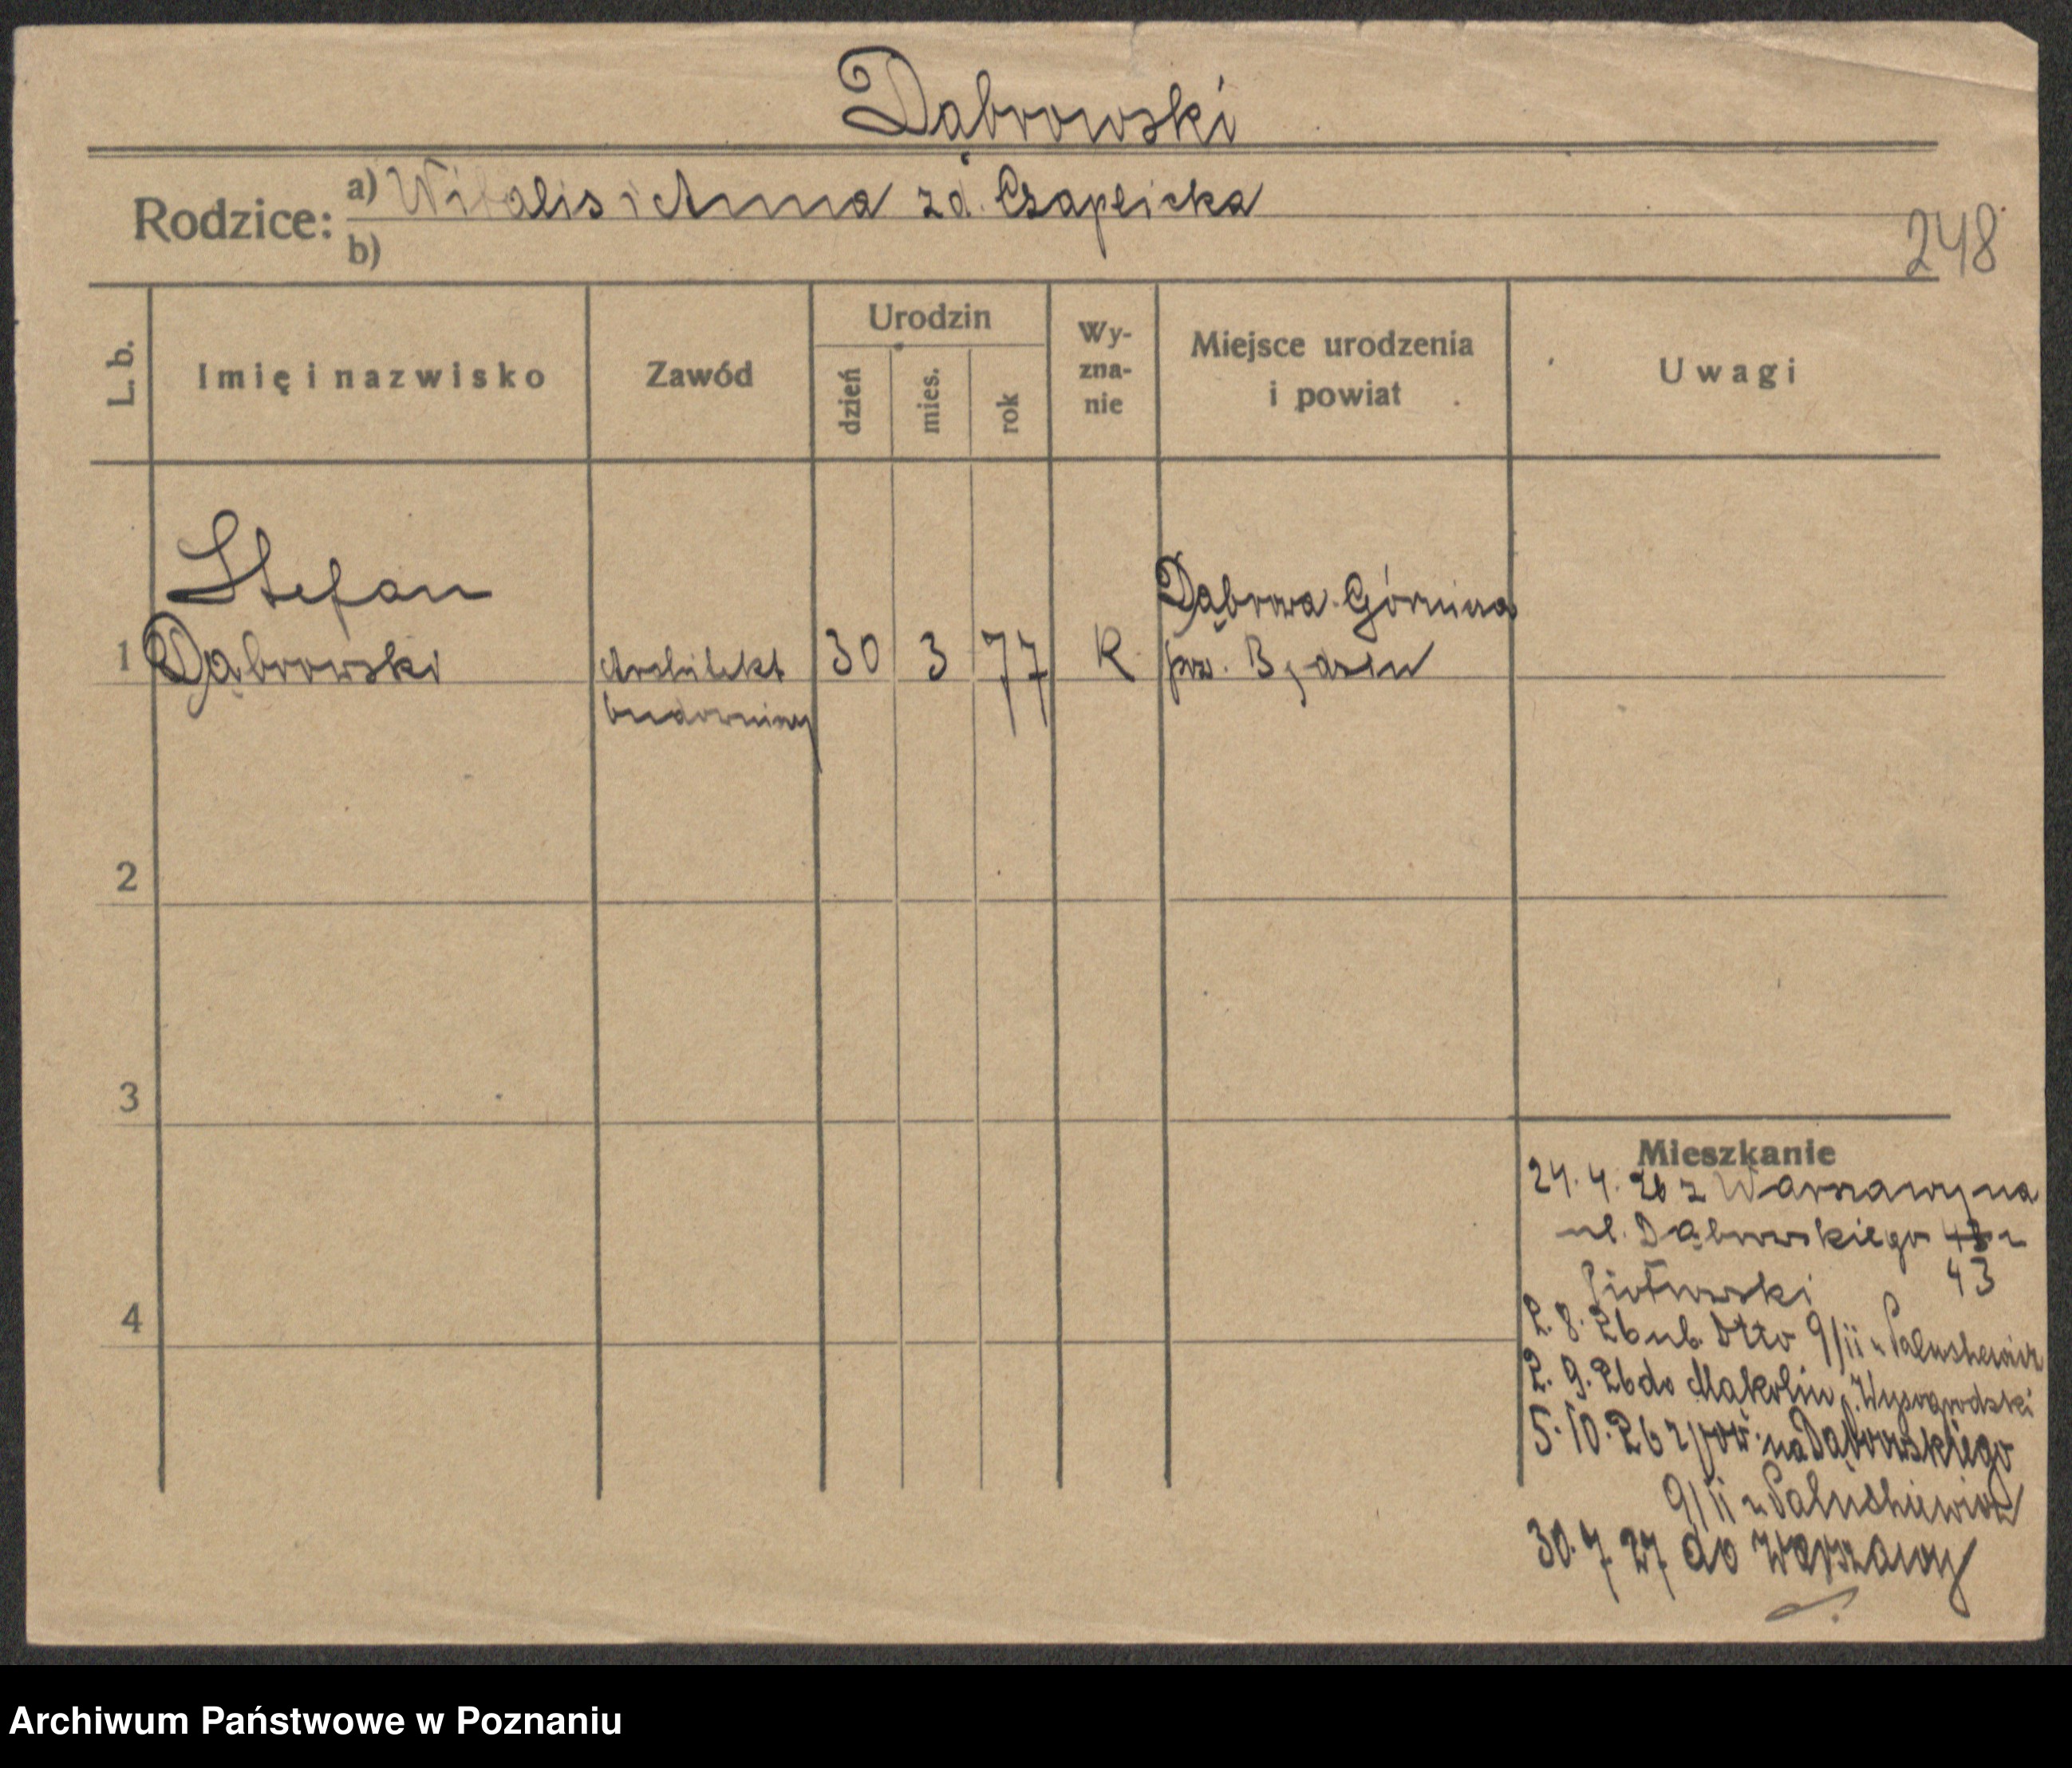 Dąbrowski
Rodzice: a) Witalis i Anna zd. Czaplicka
b)
248
L. b.
Imię i nazwisko
Zawód
Urodzin
dzień
mies.
rok
Wy-
zna-
nie
Miejsce urodzenia
i powiat
Uwagi
Stefan
1 Dąbrowski
Architekt
budowniczy
30 3 77
R
Dąbrowa Górnicza
pow. Będzin
2
3
4
Mieszkanie
24. 4. 26 z Warszawy na
ul. Dąbrowskiego 43 u
43
Piotrowski
2. 8. 26 ul. Otto 9/II u
2. 9. 26 do Mąkolin Wyszogrodzki
5. 10. 26 z pow. na Dąbrowskiego
9/II u
30. 7. 27 do Warszawy
Archiwum Państwowe w Poznaniu